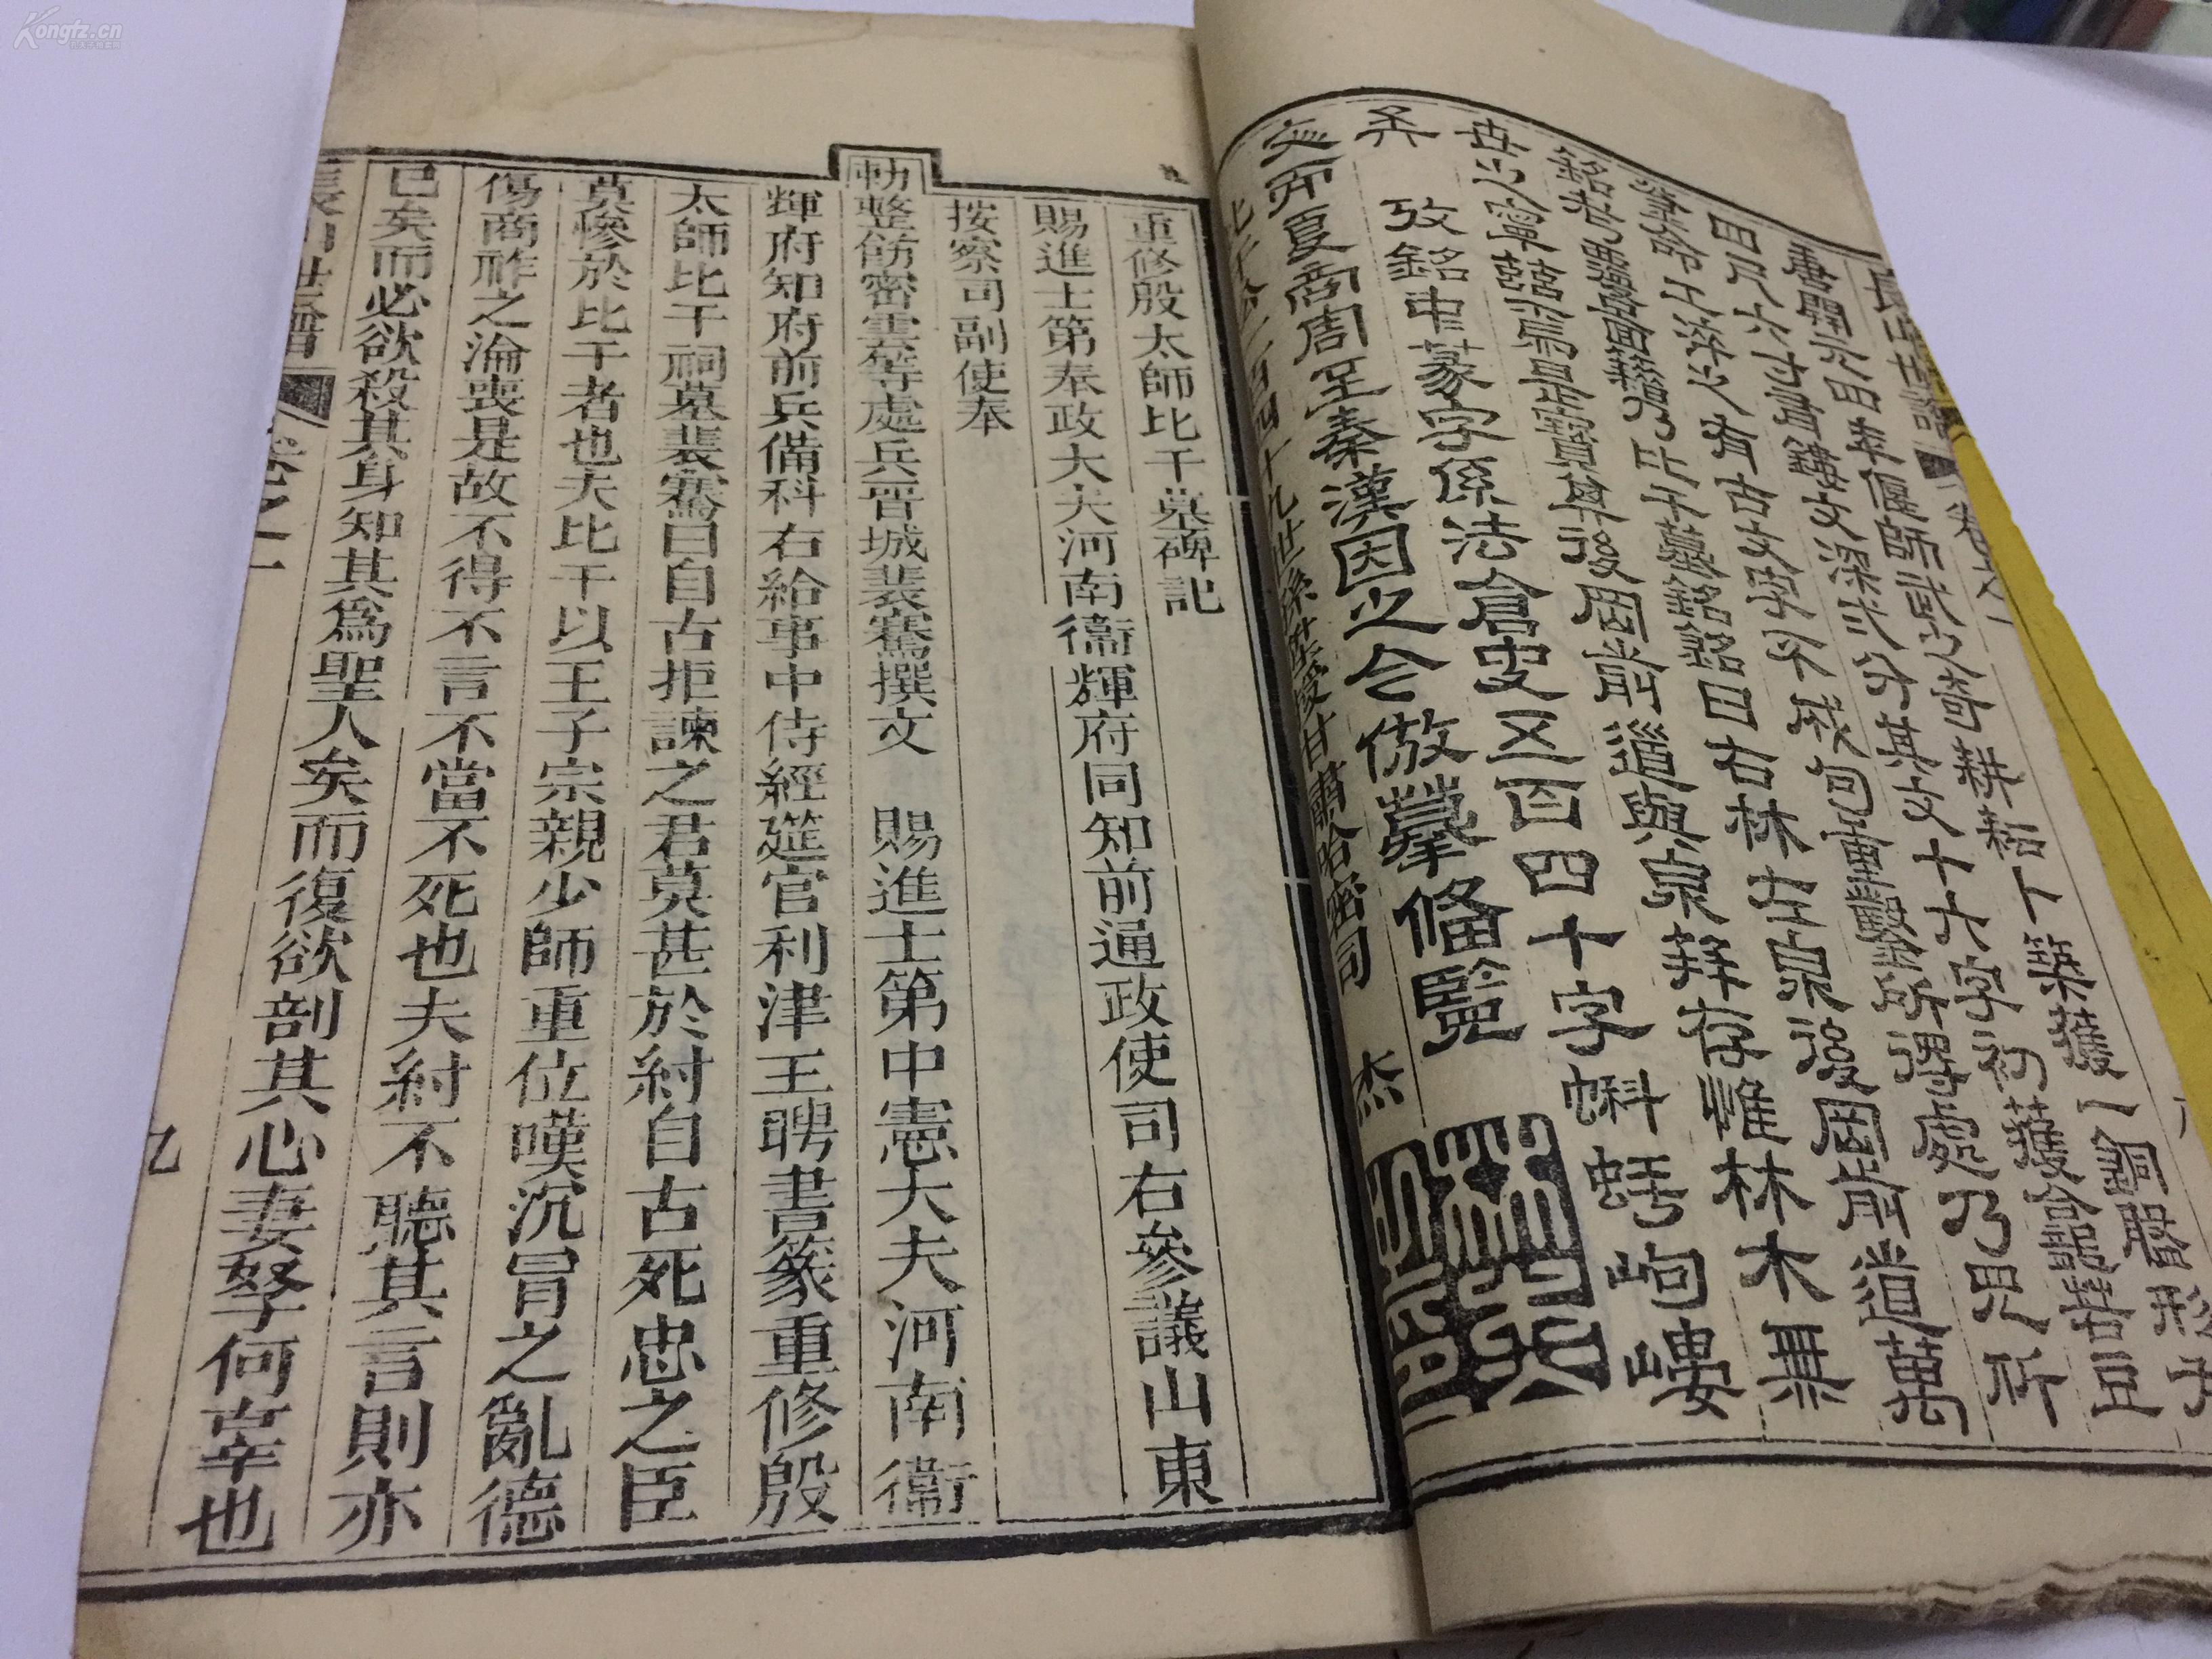 唐開元四年偃師武之奇耕耘卜築獲一銅盤形
四尺六寸有鏤文深弍分其文十六字初獲
命工滌之有古文字不成句重鑿所得處乃
乃比干墓銘銘曰右林左泉後岡前道萬
世之寧茲焉是寶其後岡前道與泉竝存惟林木無
矣
攷銘中篆字係法倉史五百四十字蝌蚪岣嶁
文而夏商周至秦漢因之今倣摹備覽
比干公二百四十九世孫 杰
重修殷太師比干墓碑記
賜進士第奉政大夫河南衞輝府同知前通政使司右參議山東
按察司副使奉
勅整飭密雲等處兵晋城裴騫撰文 賜進士第中憲大夫河南衞
輝府知府前兵備科右給事中侍經筵官利津王聘書篆重修殷
太師比干祠墓裴騫曰自古拒諫之君莫甚於紂自古死忠之臣
莫慘於比干者也夫比干以王子宗親少師重位嘆沉冐之亂德
傷商祚之淪喪是故不得不言不當不死也夫紂不聽其言則亦
已矣而必欲殺其身知其爲聖人矣而復欲剖其心妻孥何辜也
世譜 卷之一 九